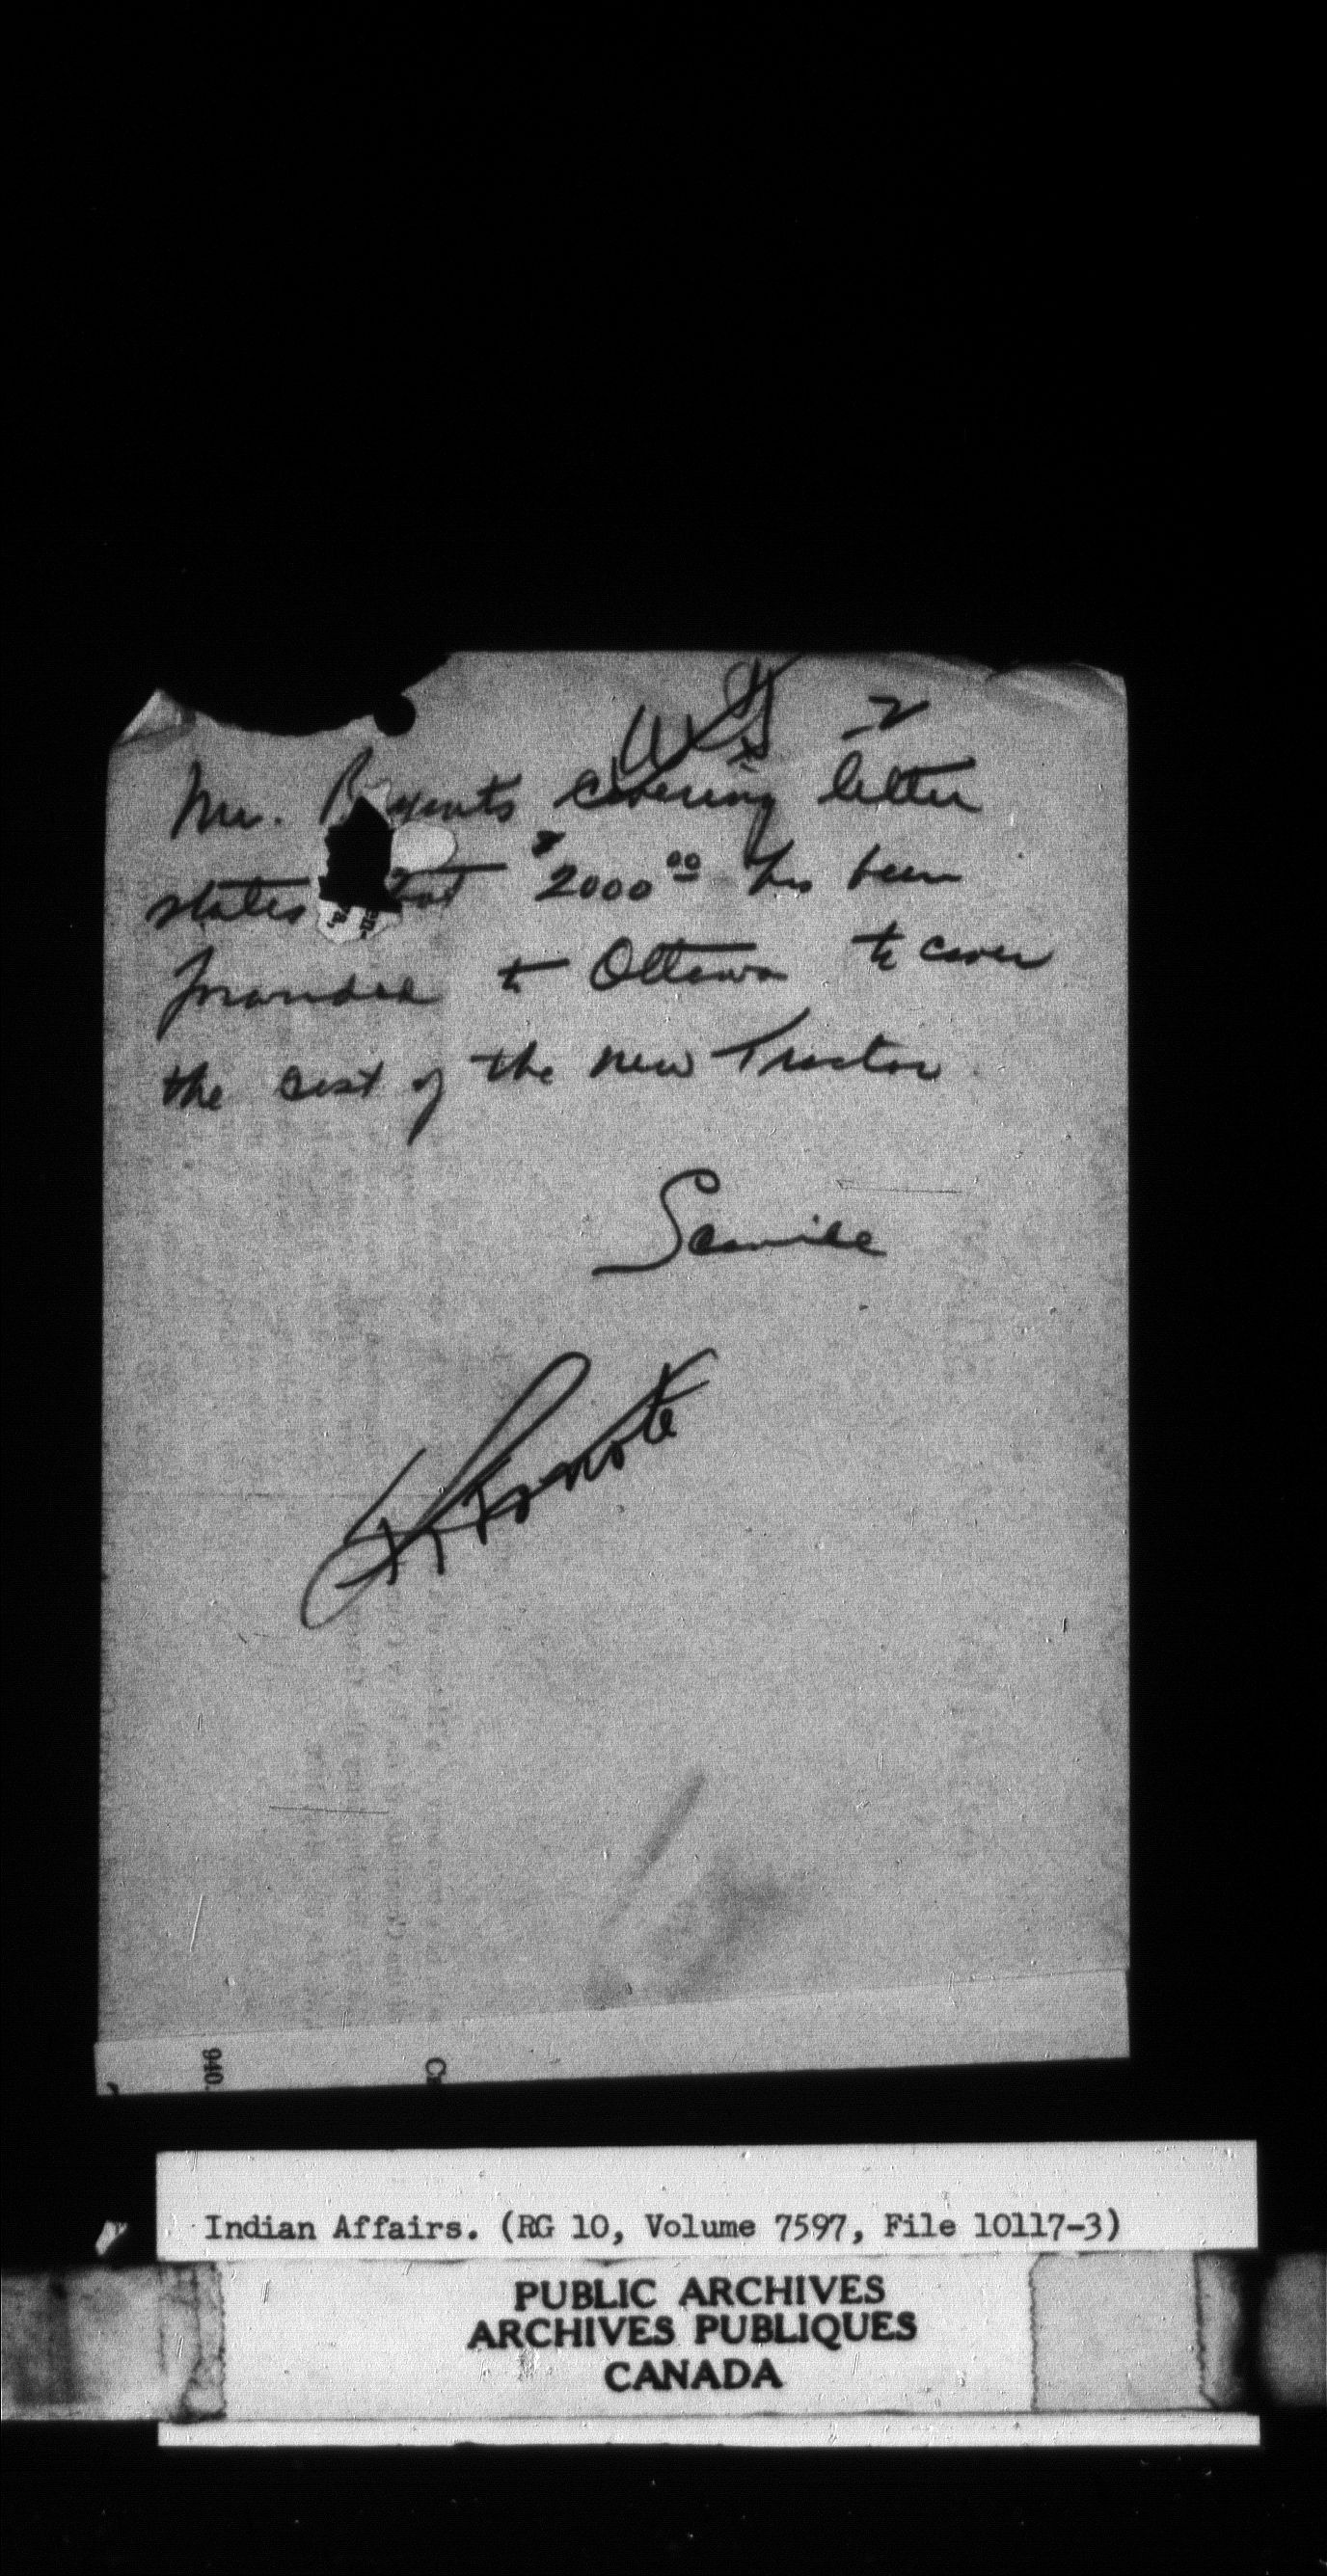 Mr. B yants covering letter
states that $2000 00 has been
forwarded to Ottawa to cover
the cost of the new Tractor
940
Indian Affairs. (RG 10, Volume 7597, File 10117-3)
PUBLIC ARCHIVES
ARCHIVES PUBLIQUES
CANADA